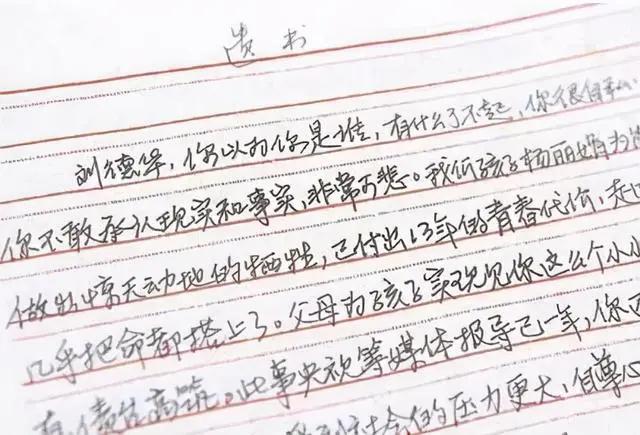 遗书
刘德华，你以为你是谁，有什么了不起，你很自私
你不敢承认现实和事实，非常可悲。我的孩子杨丽娟为
做出惊天动地的牺牲，已付出13年的青春代价，
几乎把命都搭上了。父母为孩子实现见你这么个小小
债台高筑。此事央视等媒体报导已一年，你
社会的压力更大，自尊心